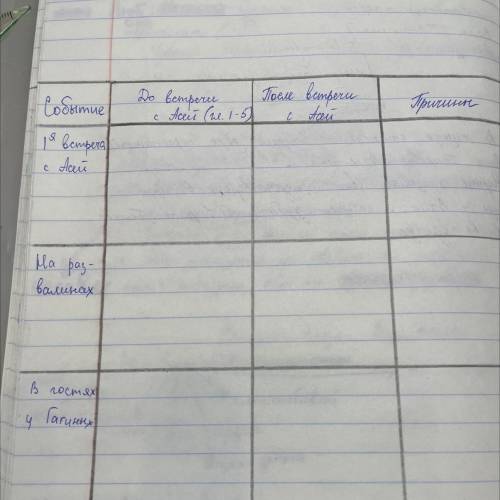 Событие
До встречи
с Асей (гл. 1-5)
После встречи
с Асей
Причины
1я встреча
с Асей
На раз-
валинах
В гостях
у Гагиных